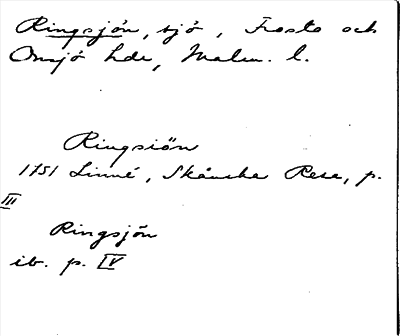 Ringsjön, sjö, Frosta och
Onsjö hde, Malm. l.
Ringsiön
1751 Linné, Skånska Resa, p.
III
Ringsjön
ib. p. IV